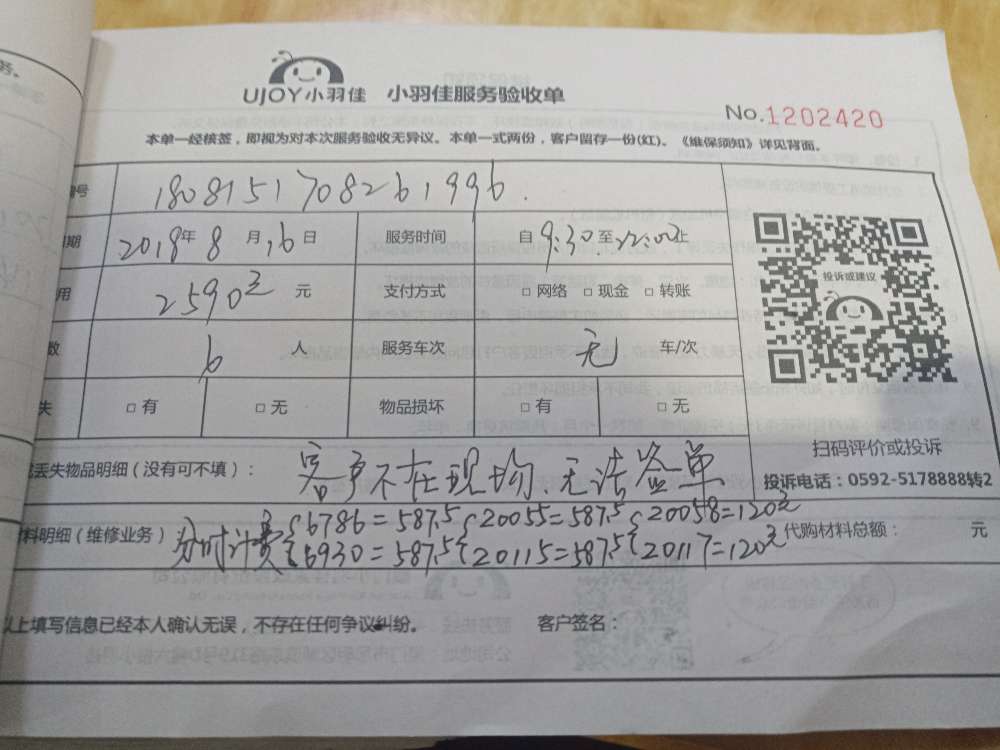 UJOY小羽佳 小羽佳服务验收单
No.1202420
本单一经核签，即视为对本次服务验收无异议。本单一式两份，客户留存一份(红)。《维保须知》详见背面。
编号 1808151708261996
日期 2018年8月16日 服务时间 自9:30至22:00止
用 2590元 元 支付方式 □ 网络 □ 现金 □ 转账
数 6 人 服务车次 无 车/次
失 □ 有 □ 无 物品损坏 □ 有 □ 无
投诉或建议
扫码评价或投诉
投诉电话：0592-5178888转2
丢失物品明细（没有可不填）： 客户不在现场、无法签单
料明细（维修业务） 分时计费{6786=587.5{20055=587.5{20058=120元
{6930=587.5{20115=587.5{20117=120元 代购材料总额： 元
以上填写信息已经本人确认无误，不存在任何争议纠纷。 客户签名：